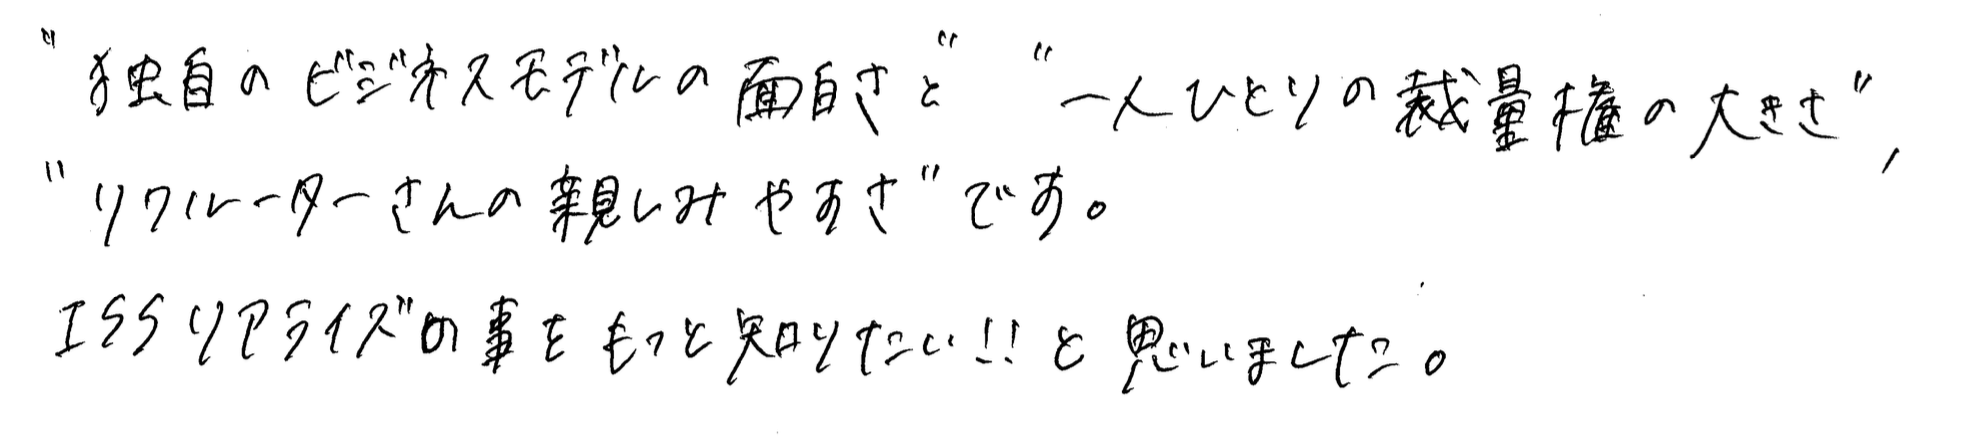 "独自のビジネスモデルの面白さと" "一人ひとりの裁量権の大きさ",
"リクルーターさんの親しみやすさ"です。
ISSリアライズの事をもっと知りたい!!と思いました。